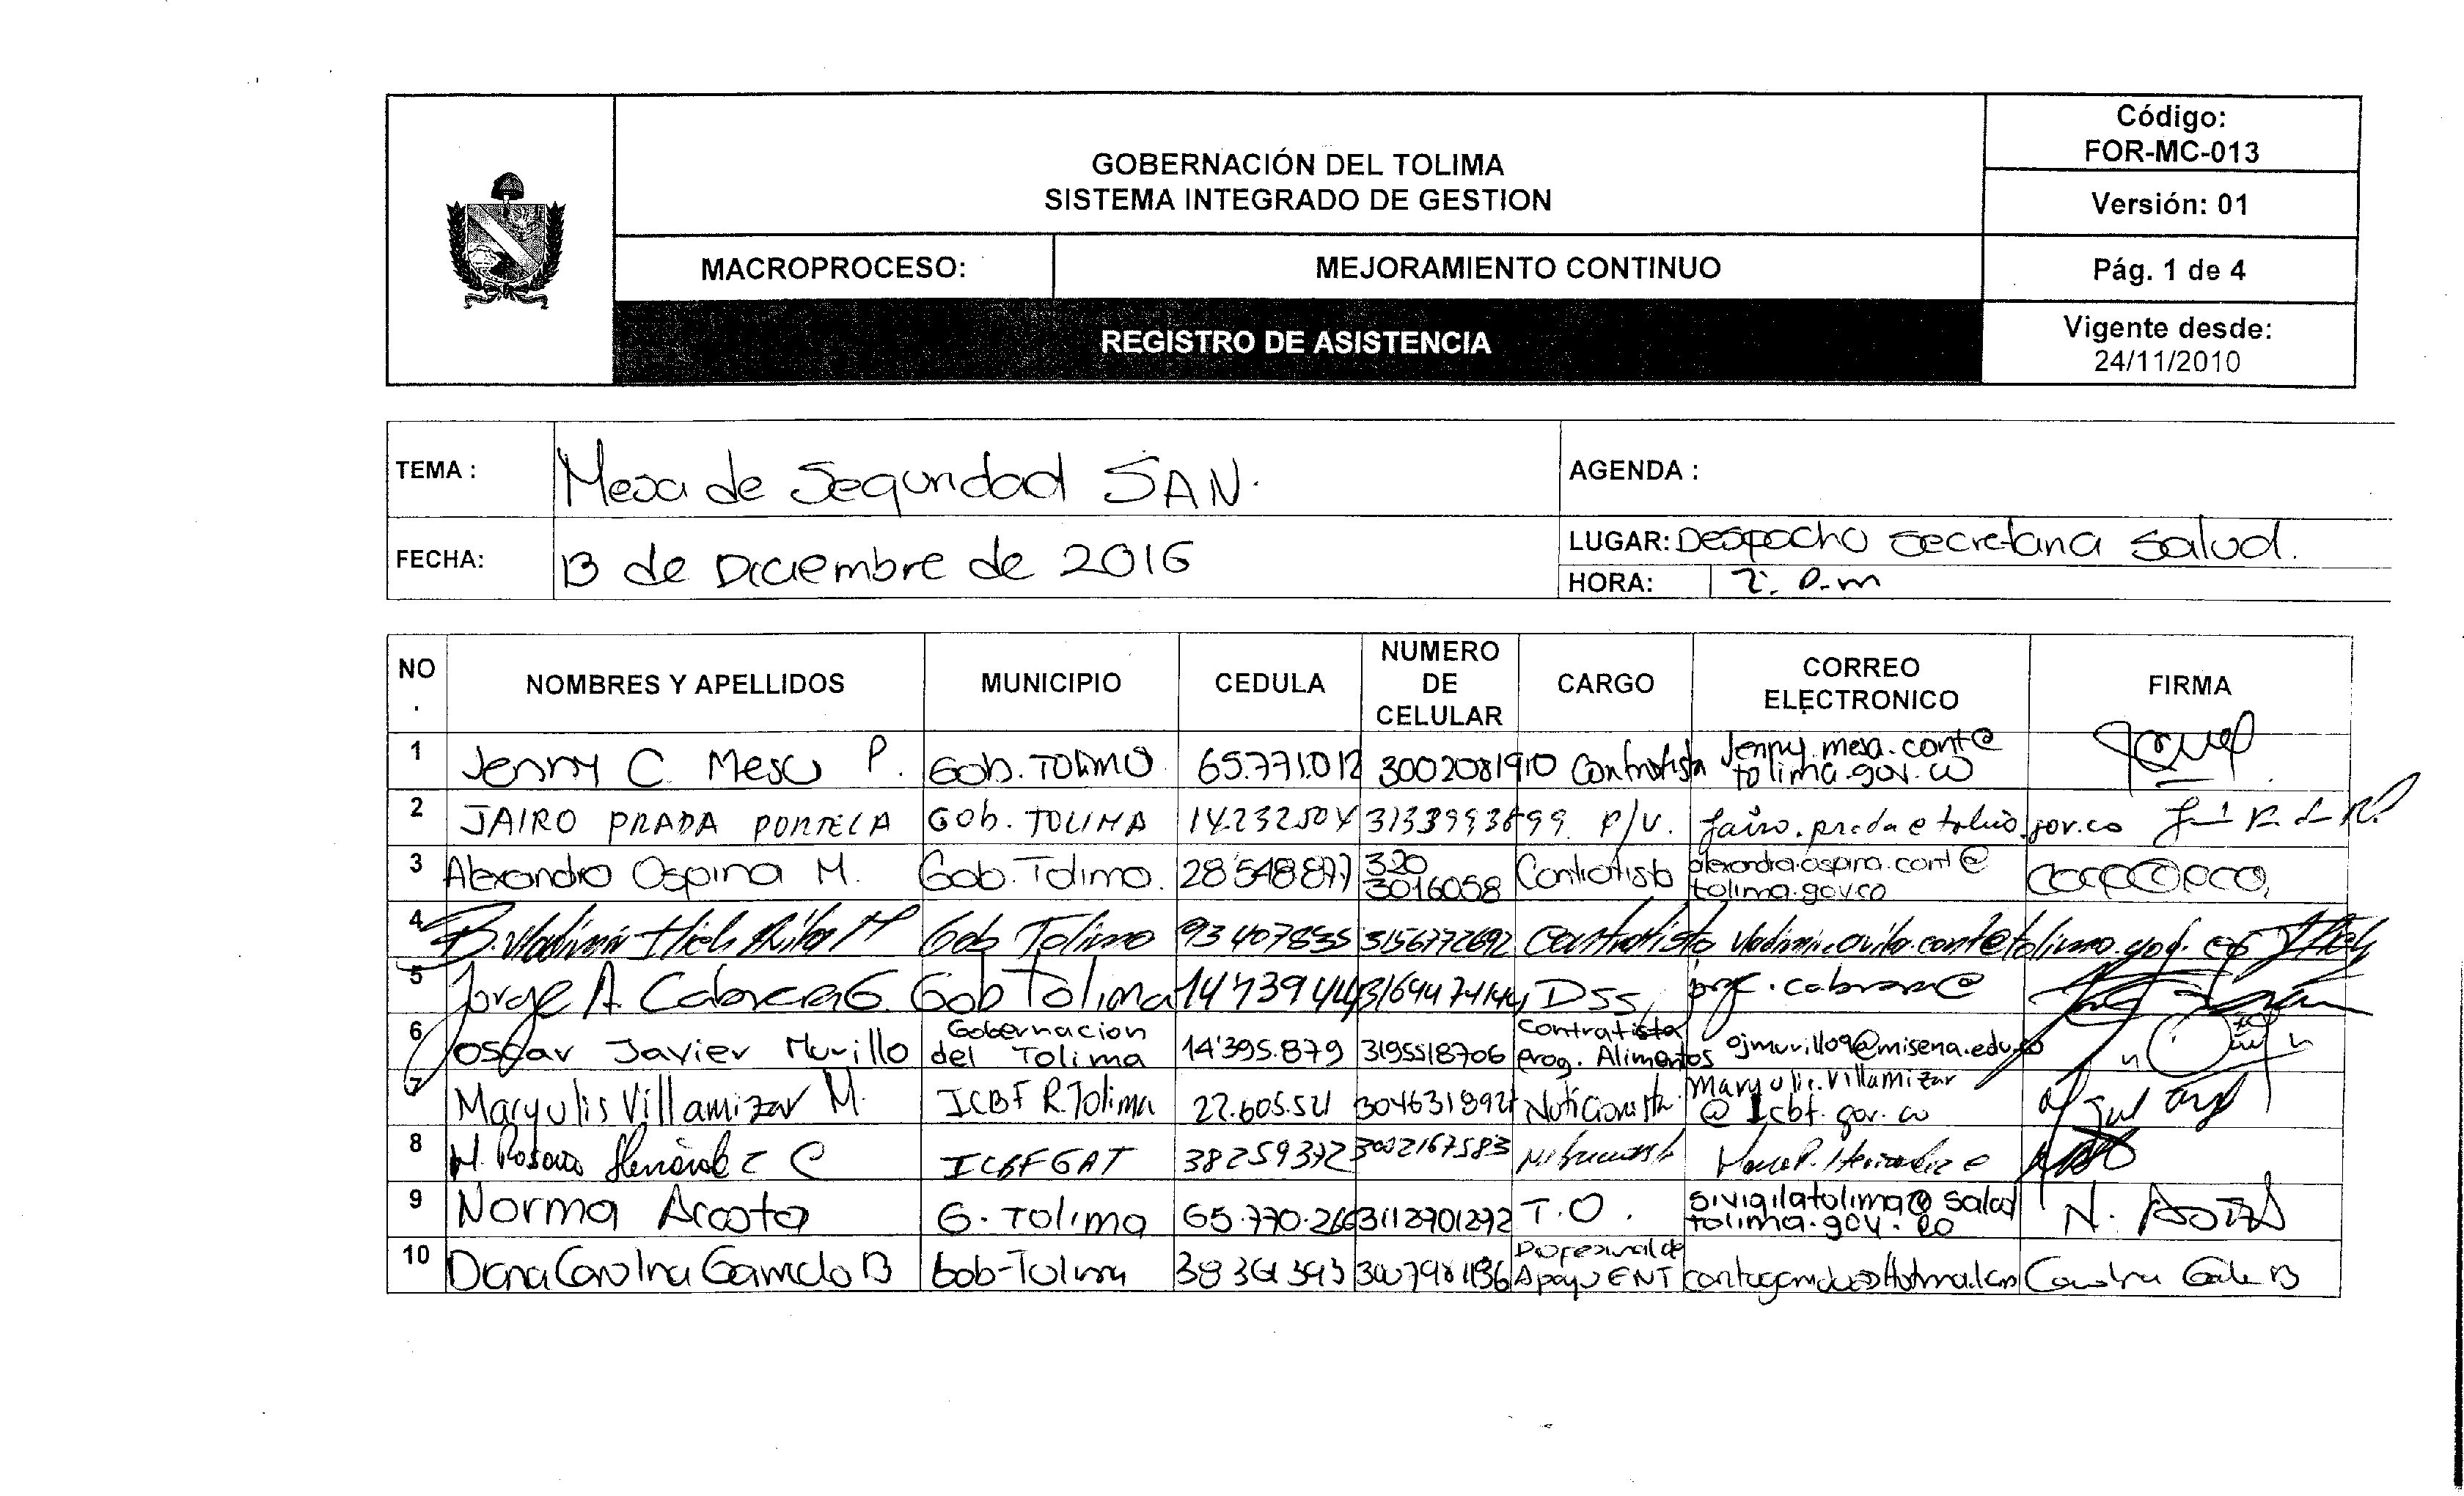 Código:
FOR-MC-013
GOBERNACIÓN DEL TOLIMA
SISTEMA INTEGRADO DE GESTION
Versión: 01
MACROPROCESO:
MEJORAMIENTO CONTINUO
Pág. 1 de 4
REGISTRO DE ASISTENCIA
Vigente desde:
24/11/2010
TEMA :
Mesa de Seguridad SAN.
AGENDA :
FECHA:
13 de Diciembre de 2016
LUGAR: Despacho Secretaria Salud.
HORA:
2: p.m
NO.
NOMBRES Y APELLIDOS
MUNICIPIO
CEDULA
NUMERO DE CELULAR
CARGO
CORREO ELECTRONICO
FIRMA
1 Jenny C. Mesa P. Gob. Tolima 65.771.012 3002081910 Contratista Jenny.mesa.cont@
tolima.gov.co
2 JAIRO PRADA PORTELA Gob. TOLIMA 14.232.504 3133993699 P/U. jairo.prada@tolima.gov.co
3 Alexandra Ospina M. Gob. Tolima. 28'548877 320
3016058 Contratista alexandra.ospina.cont@
tolima.gov.co
4 B. Vladimir Avila M Gob Tolima 93407835 3156772692 Contratista vladimir.avila.cont@tolima.gov.co
5 Jorge A Cabrera G. Gob Tolima 3164474144 DSS jorge.cabrera@
6 Oscar Javier Murillo Gobernacion
del Tolima 14'395.879 3195518706 Contratista
prog. Alimentos ojmurillo9@misena.edu.co
7 Maryulis Villamizar M. ICBF R.Tolima 22.605.521 Nutricionista Maryulis.Villamizar
@Icbf.gov.co
8 M. Rosario Hernández C ICBF GAT 38259372 3002167583
9 Norma Acosta G. Tolima 65.770.266 3112901292 T.O. sivigilatolima@salud
tolima.gov.co N. Acosta
10 Diana Carolina Garrido B Gob-Tolima 38361393 Profesional de
Apoyo ENT